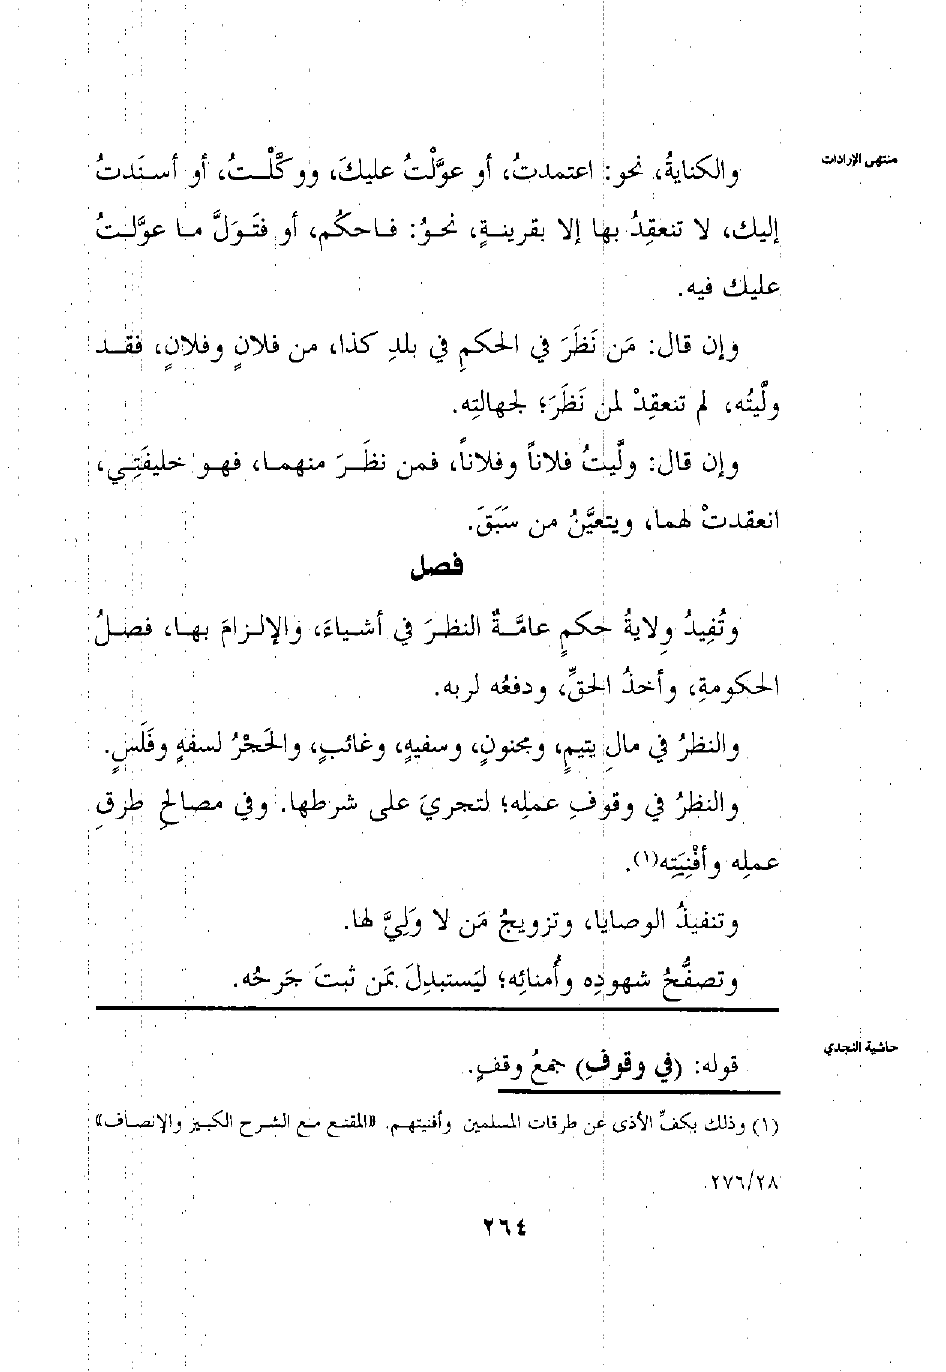 منتهى الإرادات
والكنايةُ، نحو: اعتمدتُ، أو عوَّلْتُ عليكَ، ووكَّلْتُ، أو أسنَدتُ
إليك، لا تنعقِدُ بها إلا بقرينةٍ، نحوُ: فاحكُم، أو فتَوَلَّ ما عوَّلتُ
عليك فيه.
وإن قال: مَن نَظَرَ في الحكمِ في بلدِ كذا، من فلانٍ وفلانٍ، فقد
ولَّيتُه، لم تنعقِدْ لمن نَظَرَ؛ لجهالتِه.
وإن قال: ولَّيتُ فلاناً وفلاناً، فمن نظَرَ منهما، فهو خليفَتِي،
انعقدتْ لهما، ويتعيَّنُ من سَبَقَ.
فصل
وتُفِيدُ وِلايةُ حكمٍ عامَّةٌ النظرَ في أشياءَ، والإلزامَ بها، فصلُ
الحكومةِ، وأخذُ الحقِّ، ودفعُه لربه.
والنظرُ في مالِ يتيمٍ، ومجنونٍ، وسفيهٍ، وغائبٍ، والحَجْرُ لسفهٍ وفَلَسٍ.
والنظرُ في وقوفِ عملِه؛ لتجريَ على شرطها. وفي مصالحِ طرقِ
عملِه وأفْنِيَتِه(١).
وتنفيذُ الوصايا، وتزويجُ مَن لا وَلِيَّ لها.
وتصفُّحُ شهودِه وأُمنائِه؛ ليَستبدِلَ بمَن ثبتَ جَرحُه.
حاشية النجدي
قوله: (في وقوفِ) جمعُ وقفٍ.
(١) وذلك بكفِّ الأذى عن طرقات المسلمين وأفنيتهم. «المقنع مع الشرح الكبير والإنصاف»
٢٧٦/٢٨.
٢٦٤